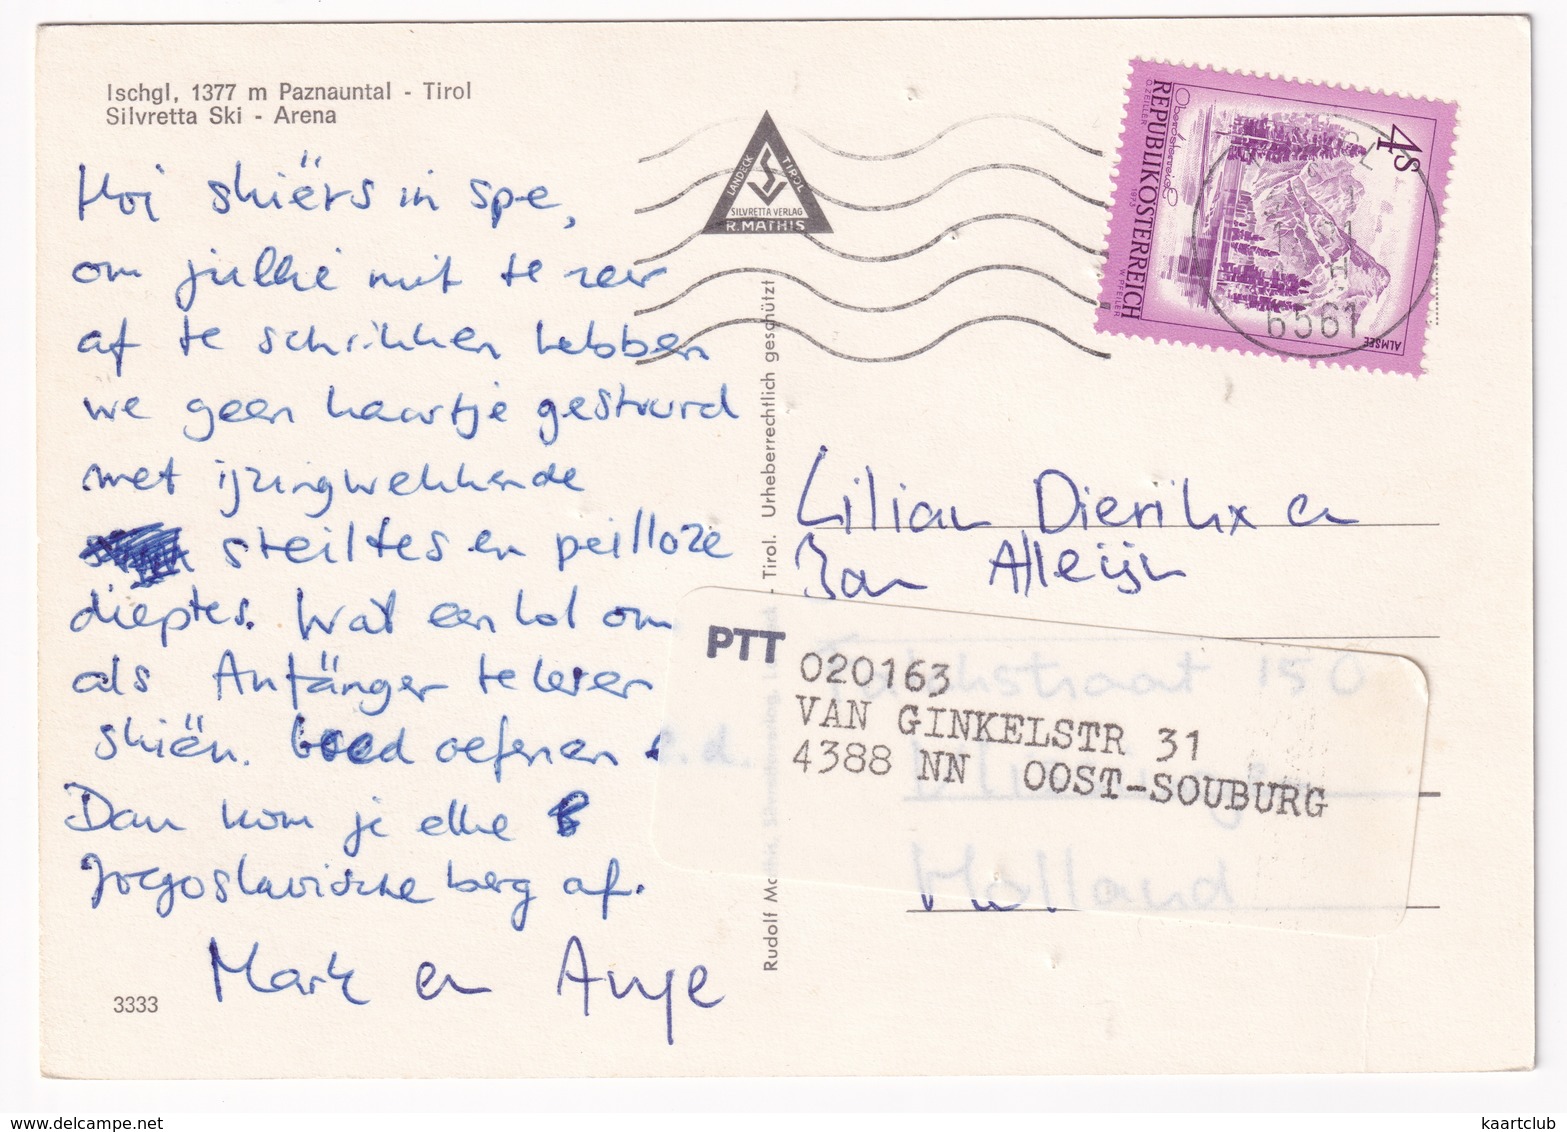 Ischgl, 1377 m Paznauntal - Tirol
Silvretta Ski - Arena
Hoi skiërs in spe,
om jullie niet te zeer
af te schrikken hebben
we geen kaartje gestuurd
met ijzingwekkende
steiltes en peilloze
dieptes. Wat een lol om
als Anfänger te leren
skiën. Goed oefenen
Dan kom je elke
Joegoslavische berg af.
Mark en Anje
3333
LANDECK
TIROL
SILVRETTA VERLAG
R. MATHIS
Tirol. Urheberrechtlich geschützt
Rudolf
4S
REPUBLIK ÖSTERREICH
Oberösterreich
O. ZEILER
1975
W. PFEILER
ALMSEE
6561
Lilian Dierikx en
Jan Alleijn
straat 150
e.d.
Holland
PTT
020163
VAN GINKELSTR 31
4388 NN OOST-SOUBURG
www.delcampe.net
kaartclub